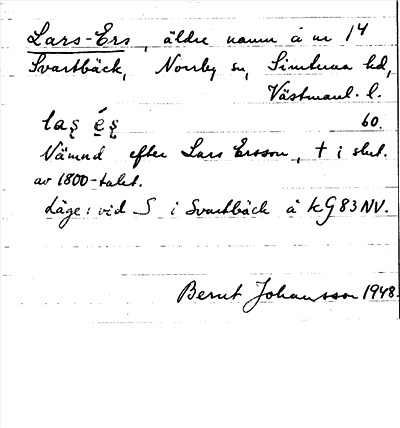 Lars-Ers, äldre namn å nr 14
Svartbäck, Norrby sn, Simtuna hd,
Västmanl. l.
60.
Nämnd efter Lars Ersson, † i slut.
av 1800-talet.
Läge: vid S i Svartbäck å kG 83 NV.
Bernt Johansson 1948.